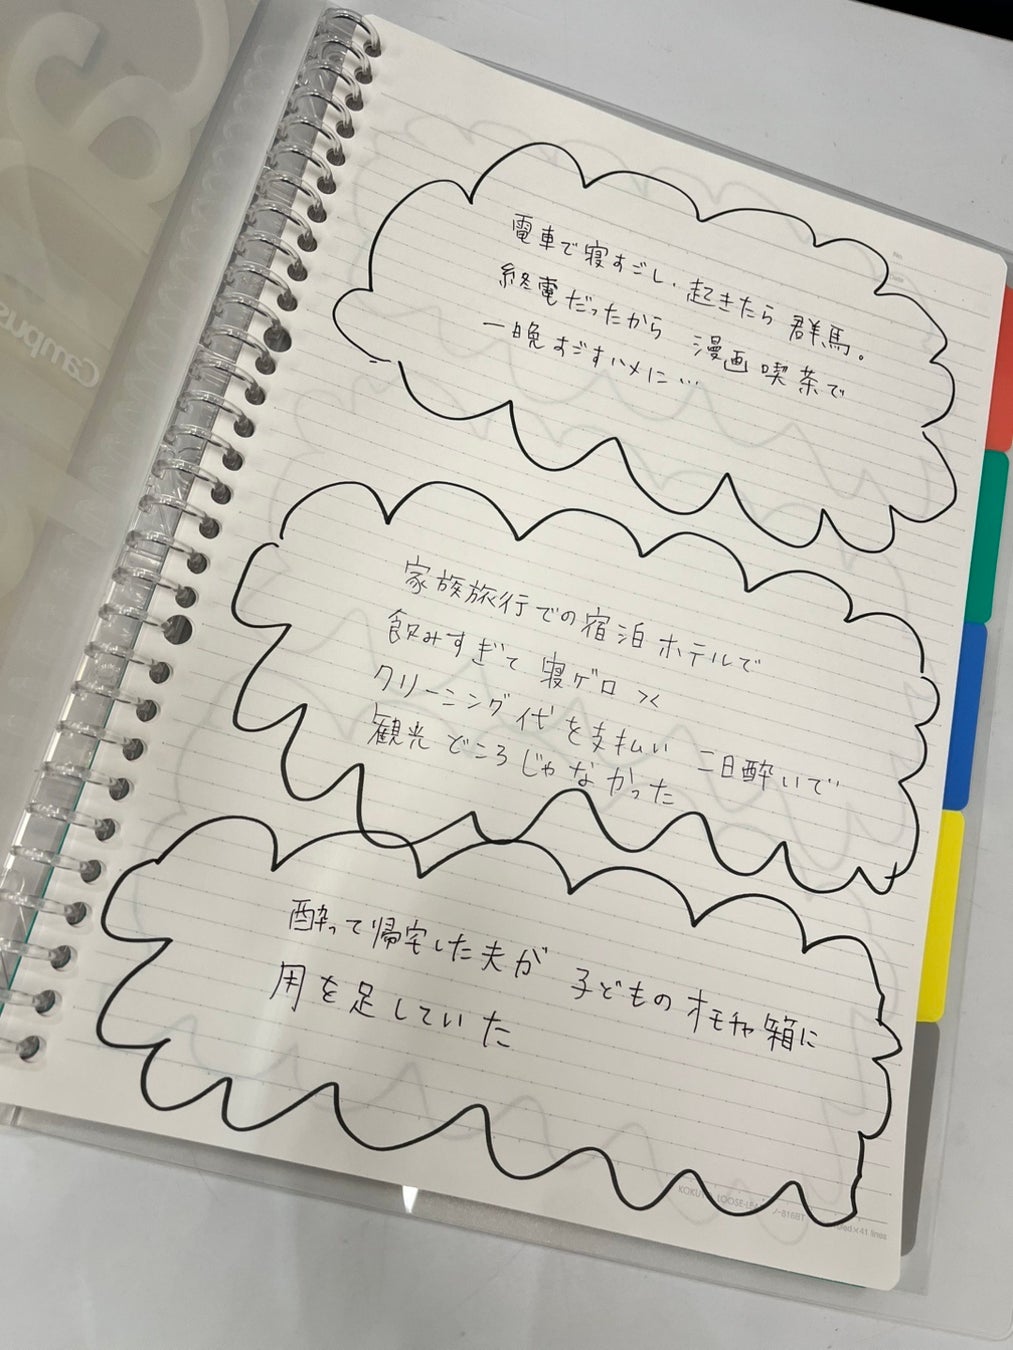 電車で寝すごし、起きたら群馬。
終電だったから 漫画喫茶で
一晩すごすハメに…
家族旅行での宿泊ホテルで
飲みすぎて 寝ゲロ
クリーニング代を支払い 二日酔いで
観光どころじゃなかった
酔って帰宅した夫が 子どものオモチャ箱に
用を足していた
Campus